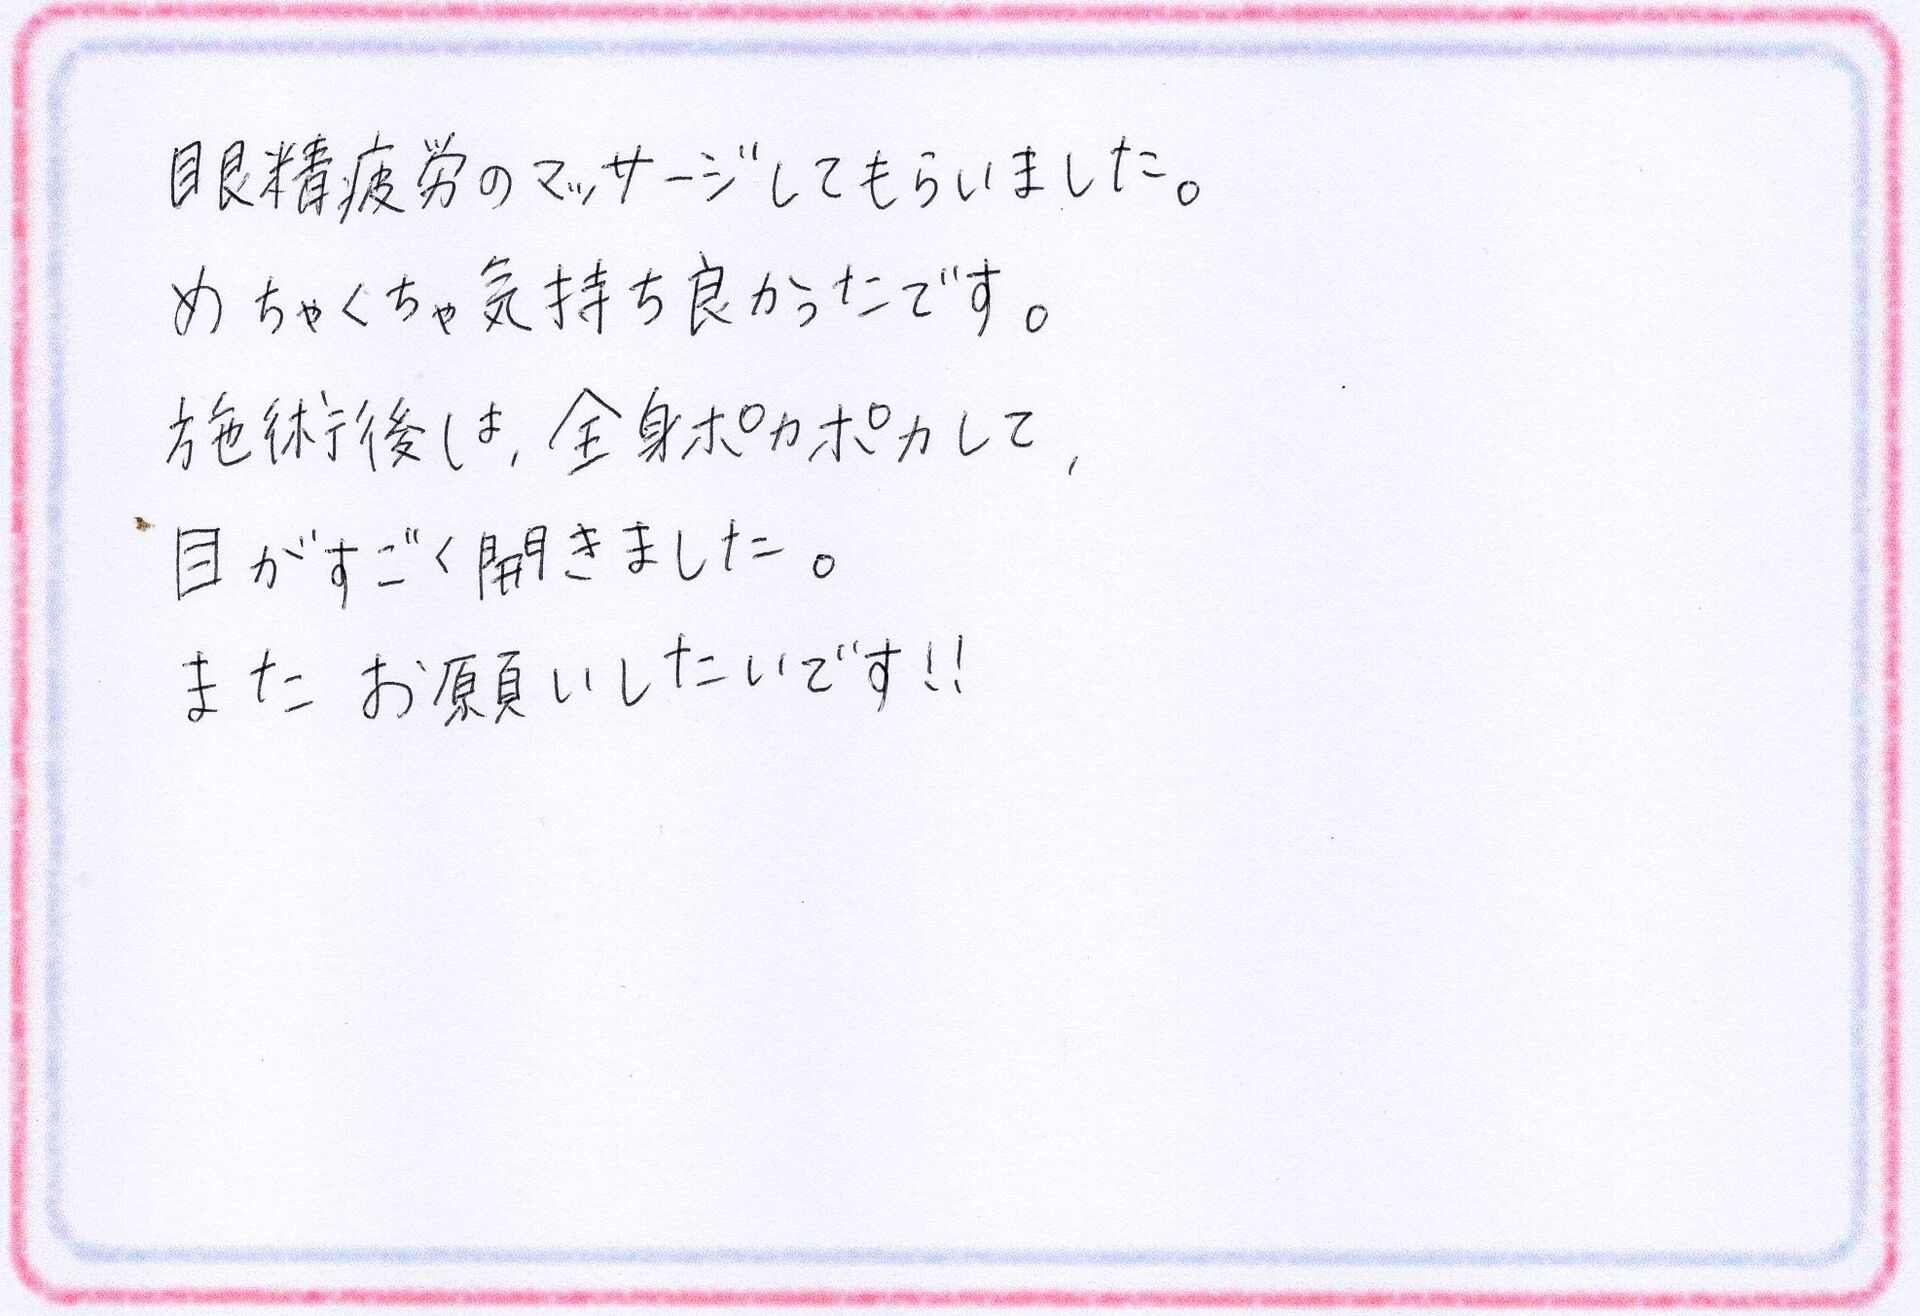 眼精疲労のマッサージしてもらいました。
めちゃくちゃ気持ち良かったです。
施術後は、全身ポカポカして、
目がすごく開きました。
また お願いしたいです!!